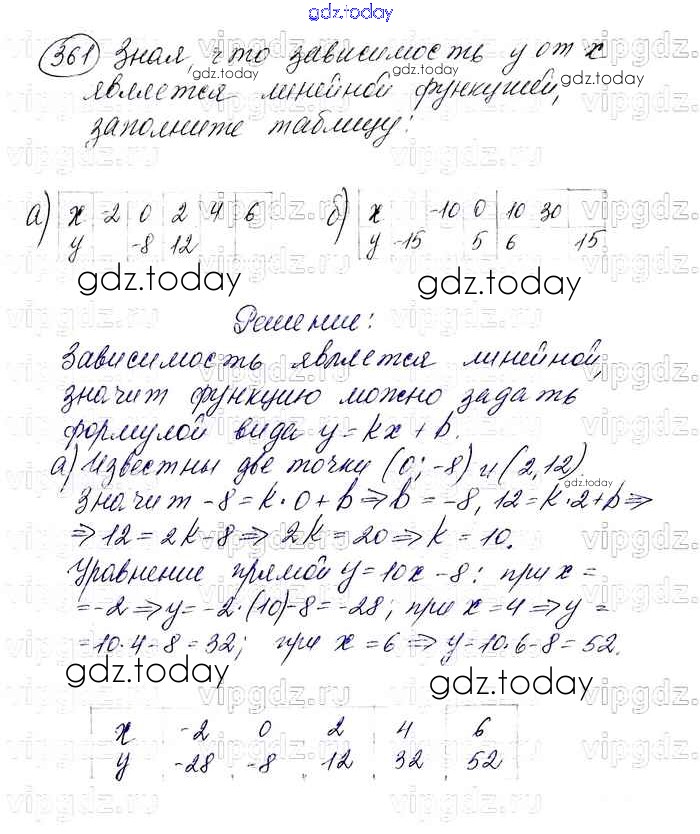 gdz.today
361 Зная, что зависимость y от x
gdz.today gdz.today
является линейной функцией,
заполните таблицу:
gdz.today
а) x -2 0 2 4 6 б) x -10 0 10 30
y -8 12 y -15 5 6 15
gdz.today gdz.today
Решение:
Зависимость является линейной,
значит функцию можно задать
формулой вида y = kx + b.
а) Известны две точки (0; -8) и (2, 12).
gdz.today
Значит -8 = k · 0 + b ⇒ b = -8, 12 = k · 2 + b ⇒
⇒ 12 = 2k - 8 ⇒ 2k = 20 ⇒ k = 10.
Уравнение прямой y = 10x - 8: при x =
= -2 ⇒ y = -2 · (10) - 8 = -28; при x = 4 ⇒ y =
= 10 · 4 - 8 = 32; при x = 6 ⇒ y = 10 · 6 - 8 = 52.
gdz.today gdz.today
x -2 0 2 4 6
y -28 -8 12 32 52